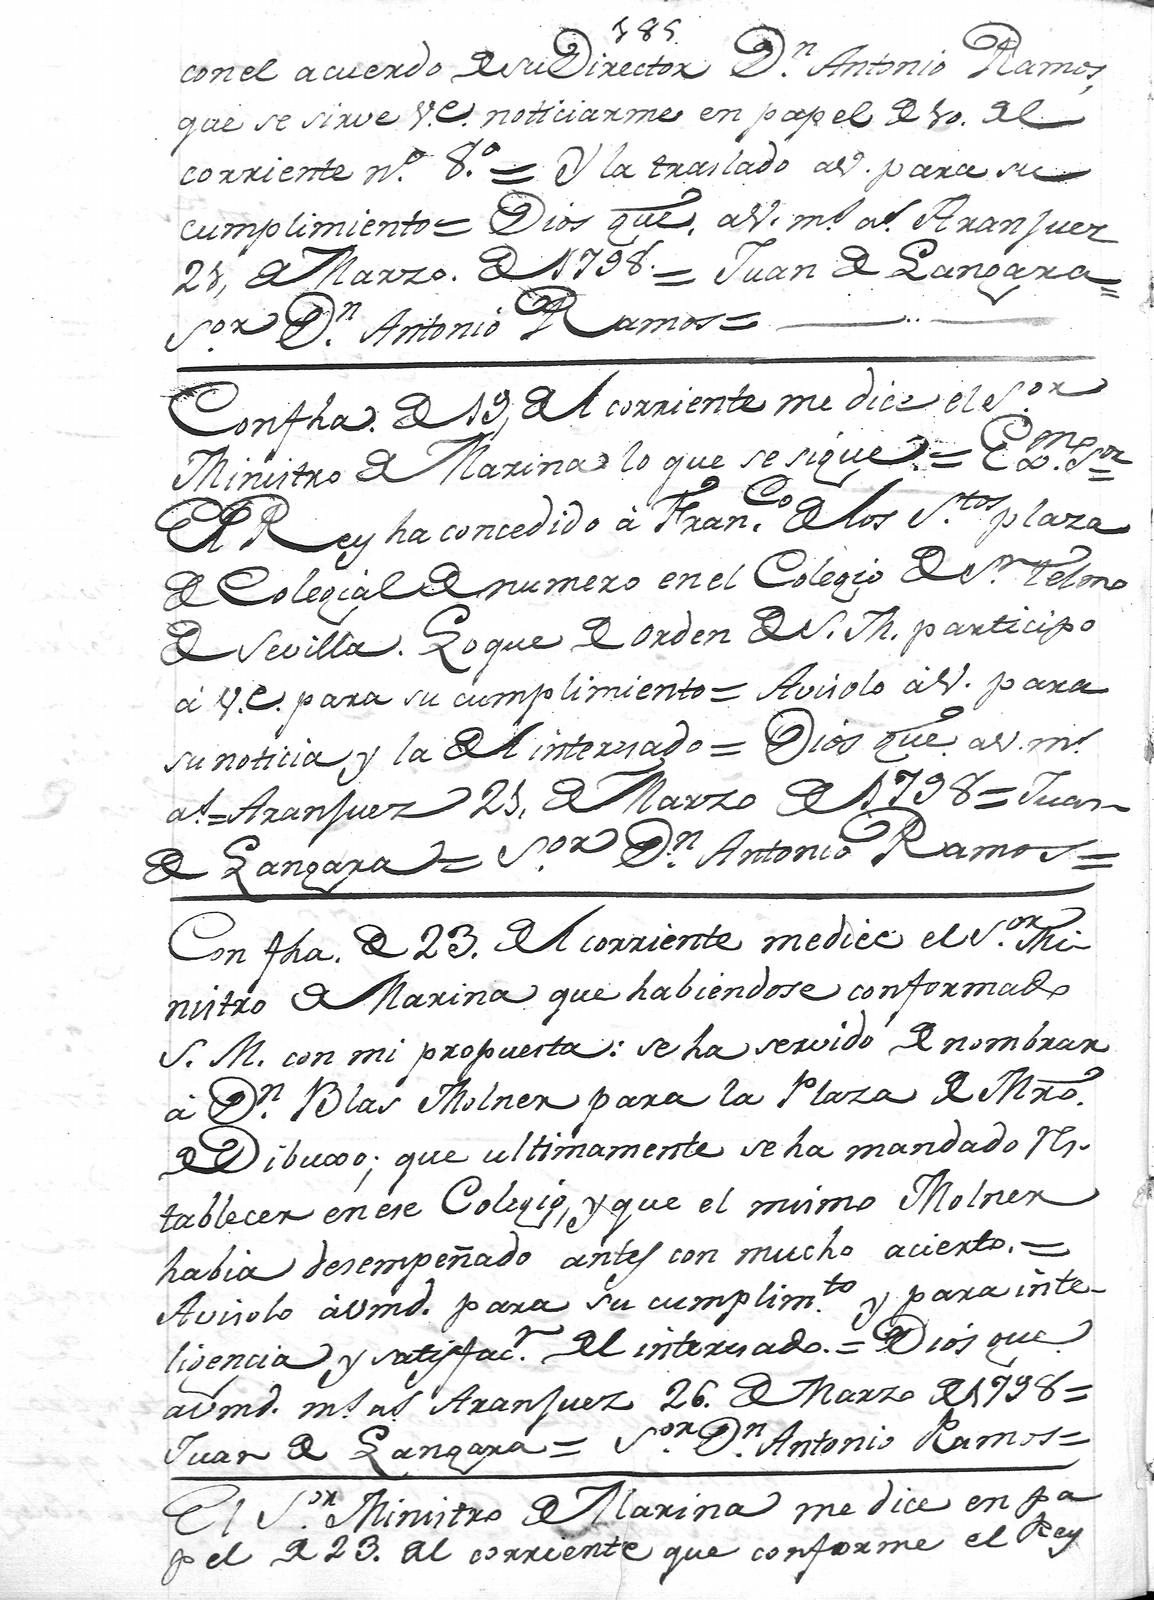 185.
con el acuerdo de su Director Dn. Antonio Ramos,
que se sirve V.E. noticiarme en papel de 10. del
corriente nº. 8º = Y la traslado a V. para su
cumplimiento = Dios gue. a V. ms. as. Aranjuez
21, de Marzo. de 1798. = Juan de Langara =
Sor. Dn. Antonio Ramos =
Con fha. de 19, del corriente me dice el Sor.
Ministro de Marina lo que se sigue = Exmo. Sor. =
El Rey ha concedido à Franco. de los Stos. plaza
de Colegial de numero en el Colegio de Sn. Telmo
de Sevilla. Lo que de orden de S. M. participo
à V.E. para su cumplimiento = Avisolo à V. para
su noticia y la del interesado = Dios gue. a V. ms.
as. = Aranjuez 21, de Marzo de 1798 = Juan
de Langara = Sor. Dn. Antonio Ramos =
Con fha. de 23. del corriente me dice el Sor. Mi-
nistro de Marina que habiendose conformado
S. M. con mi propuesta: se ha servido de nombrar
à Dn. Blas Molner para la Plaza de Mro.
de Dibuxo; que ultimamente se ha mandado res-
tablecer en ese Colegio, y que el mismo Molner
habia desempeñado antes con mucho acierto. =
Avisolo à Vmd. para su cumplimto. y para inte-
ligencia y satisfacn. del interesado. = Dios gue
a Vmd. ms. as. Aranjuez 26. de Marzo de 1798 =
Juan de Langara = Sor. Dn. Antonio Ramos =
El Sor. Ministro de Marina me dice en pa
pel de 23. del corriente que conforme el Rey